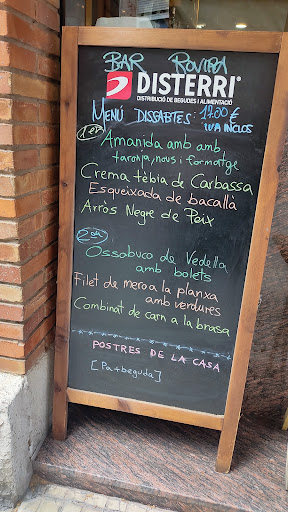 BAR ROVIRA
DISTERRI®
DISTRIBUCIÓ DE BEGUDES I ALIMENTACIÓ
MENÚ DISSABTES: 17.00 €
IVA INCLÒS
1er
Amanida amb amb
taronja, nous i formatge
Crema tèbia de Carbassa
Esqueixada de bacallà
Arròs Negre de Peix
2on
Ossobuco de Vedella
amb bolets
Filet de mero a la planxa
amb verdures
Combinat de carn a la brasa
POSTRES DE LA CASA
[Pa + beguda]